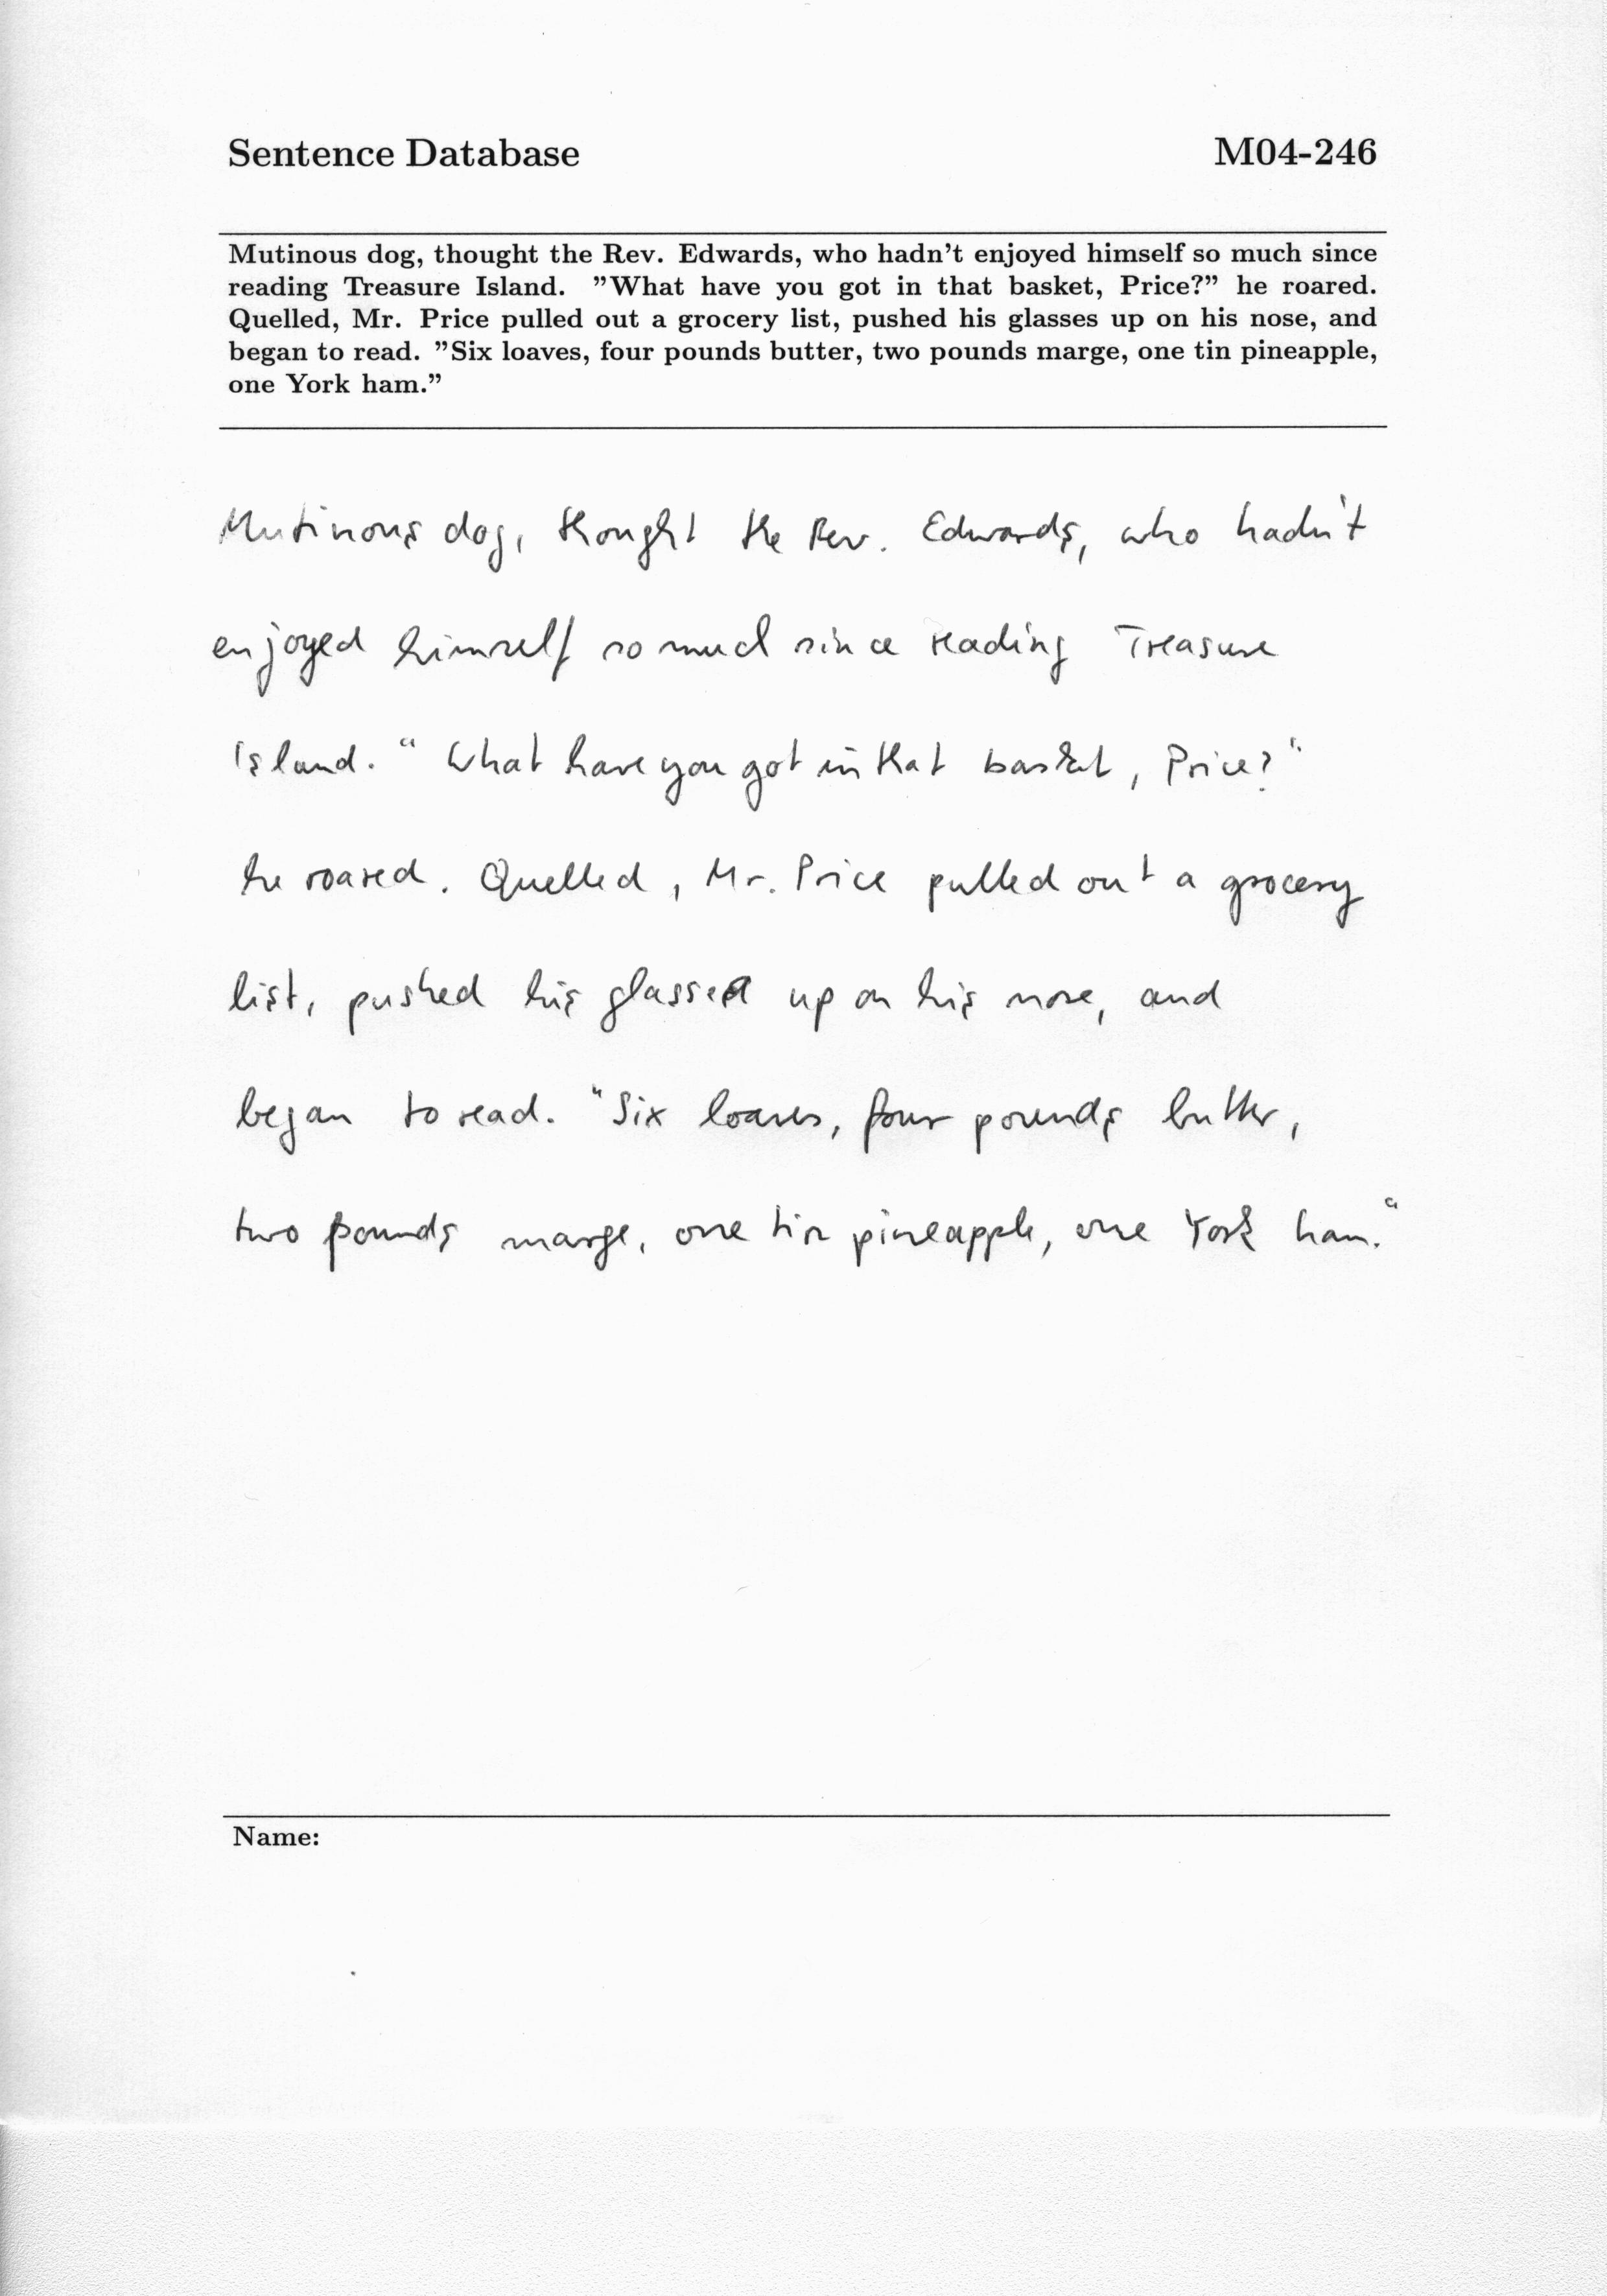 Sentence Database M04-246
Mutinous dog, thought the Rev. Edwards, who hadn't enjoyed himself so much since
reading Treasure Island. "What have you got in that basket, Price?" he roared.
Quelled, Mr. Price pulled out a grocery list, pushed his glasses up on his nose, and
began to read. "Six loaves, four pounds butter, two pounds marge, one tin pineapple,
one York ham."
Mutinous dog, thought the Rev. Edwards, who hadn't
enjoyed himself so much since reading Treasure
Island. "What have you got in that basket, Price?"
he roared. Quelled, Mr. Price pulled out a grocery
list, pushed his glasses up on his nose, and
began to read. "Six loaves, four pounds butter,
two pounds marge, one tin pineapple, one York ham."
Name: